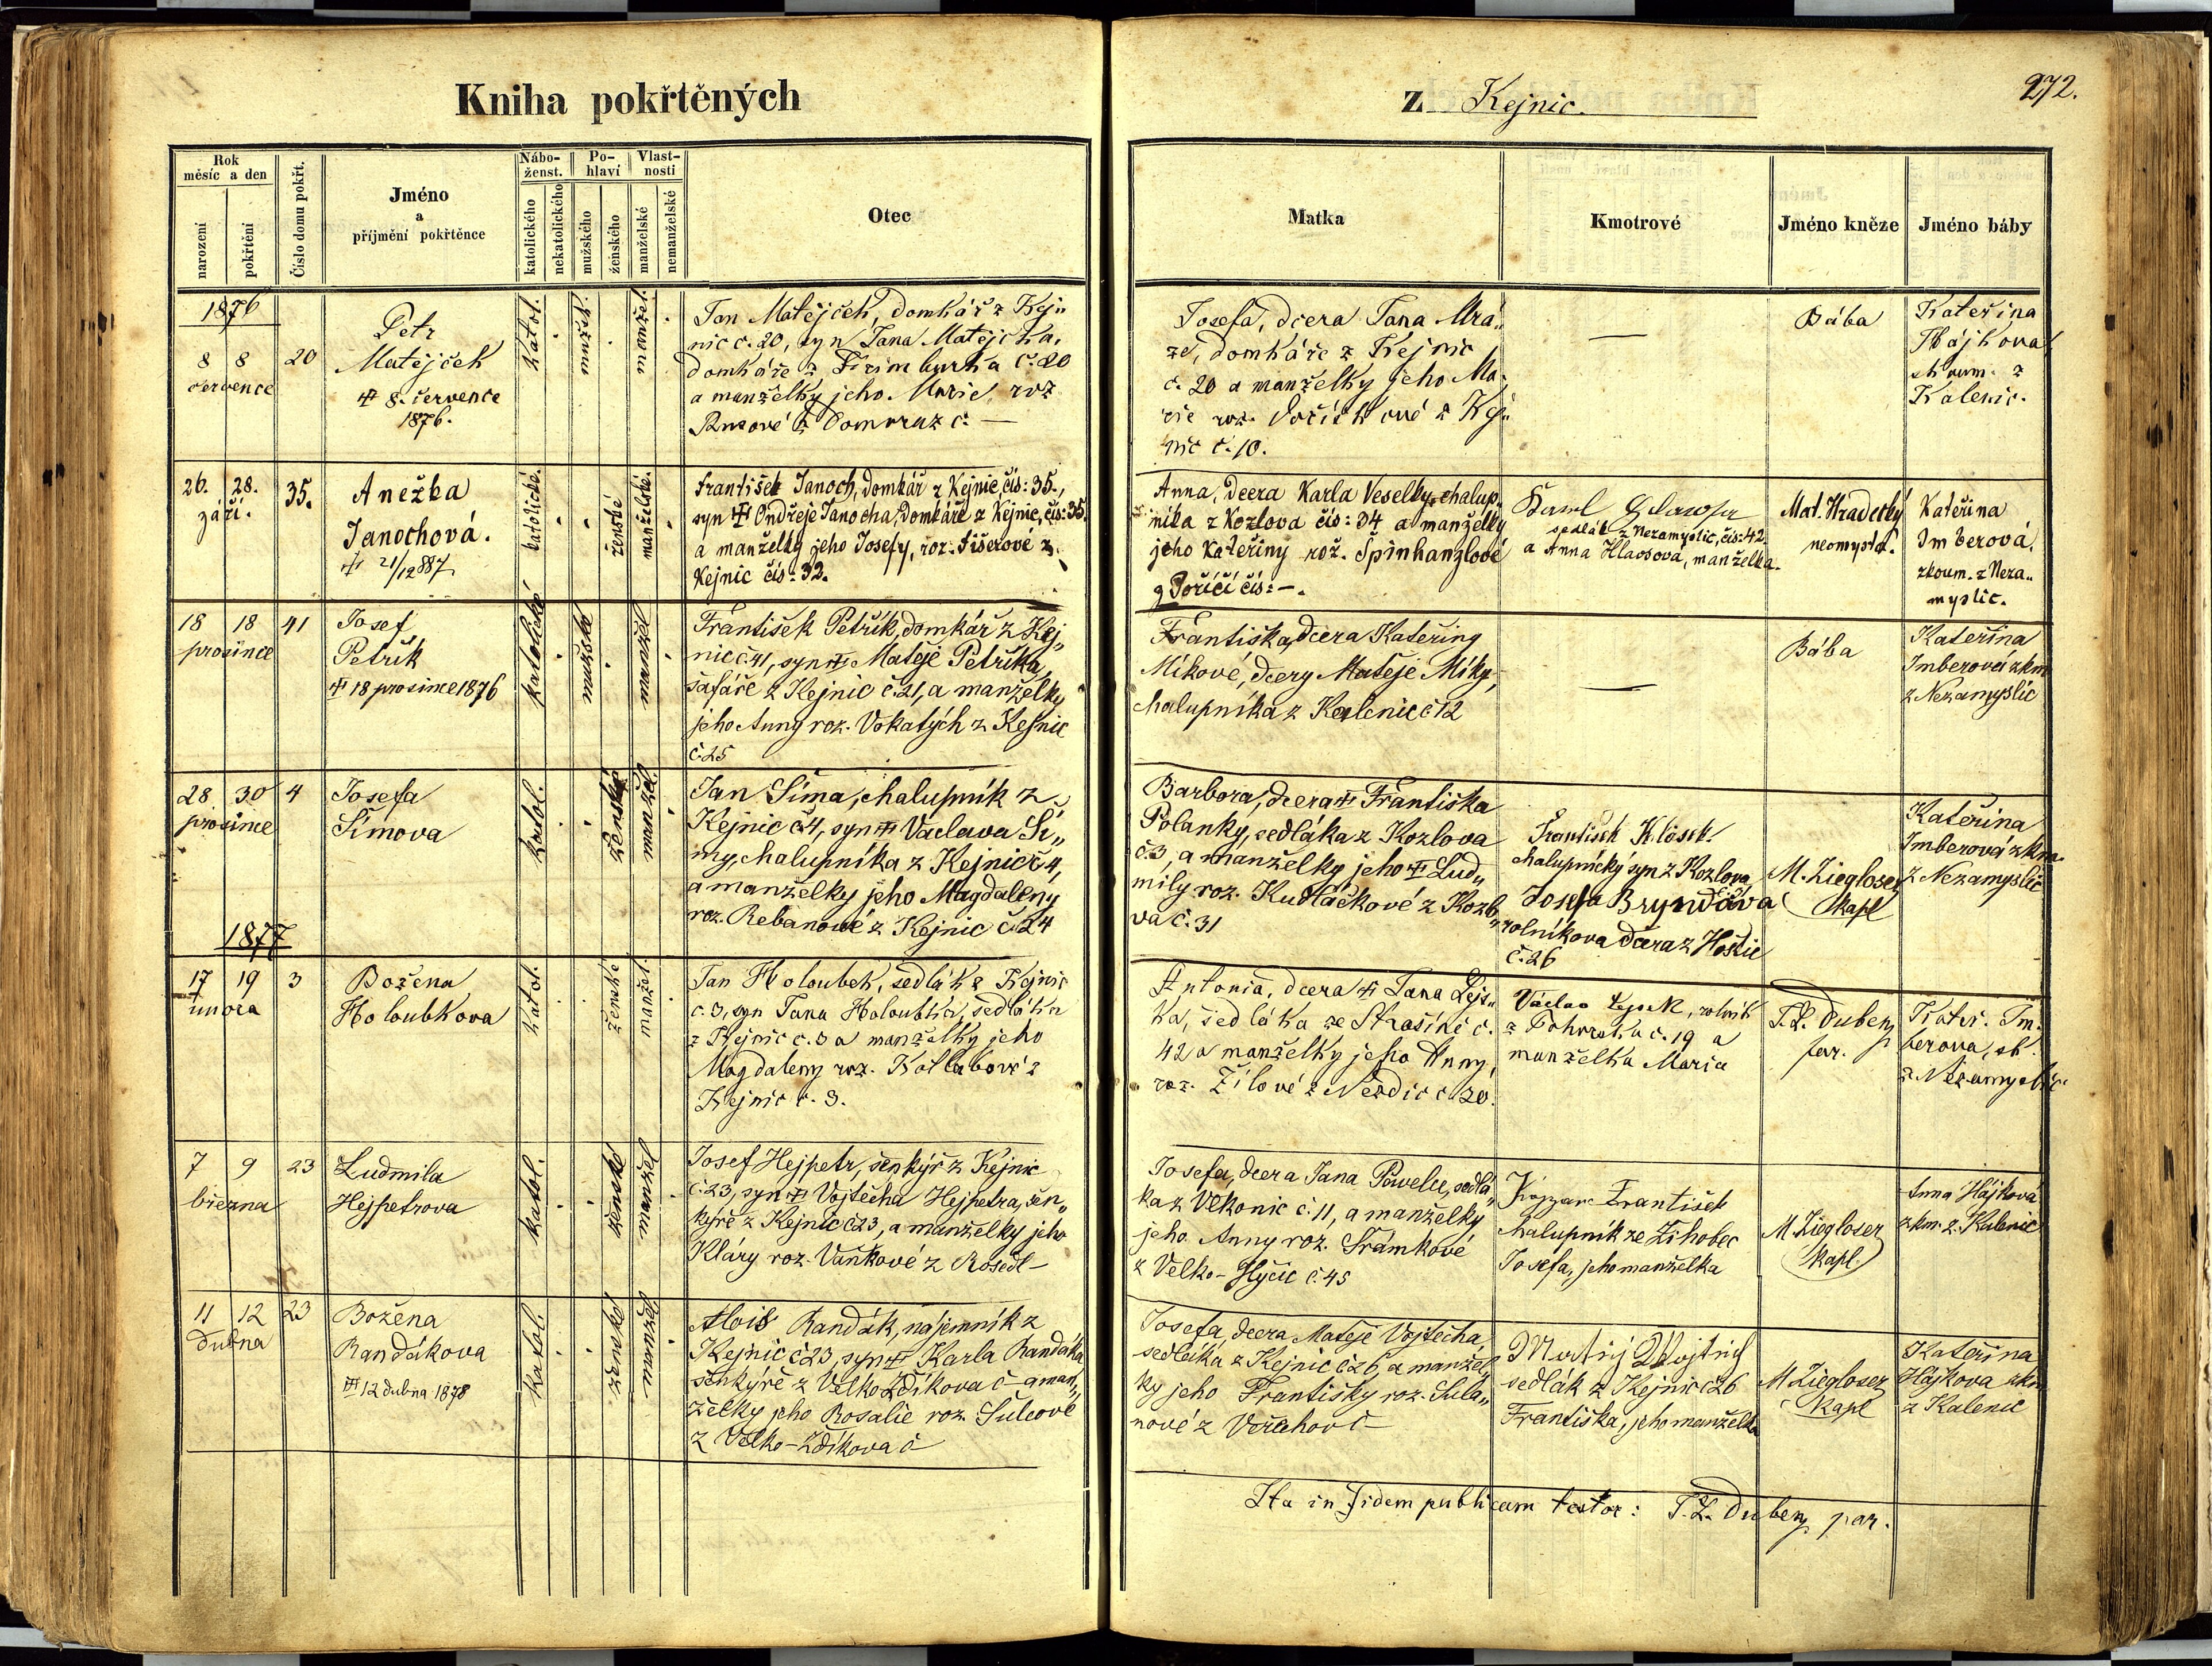 Kniha pokřtěných
z Kejnic.
272.
Rok
měsíc a den
narození
pokřtění
Číslo domu pokřt.
Jméno
a
příjmění pokřtěnce
Nábo-
ženst.
katolického
nekatolického
Po-
hlaví
mužského
ženského
Vlast-
nosti
manželské
nemanželské
Otec
Matka
Kmotrové
Jméno kněze
Jméno báby
1876
8 8
července
20
Petr
Matějček
8. července
1876.
katol.
mužsk.
manžel.
Jan Matějček, domkář z Kej„
nic č. 20, syn Jana Matějčka,
domkáře z č. 20
a manželky jeho Marie roz
z Domoraz č. —
Josefa, dcera Jana Mrá„
ze, domkáře z Kejnic
č. 20 a manželky jeho Ma„
rie roz. z Kej„
nic č. 10.
—
Bába
Kateřina
Hájkova
zkoum. z
Kalenic.
26. 28.
září.
35.
Anežka
Janochová.
21/12 887
katolické.
ženské
manželské.
František Janoch, domkář z Kejnic, čís: 35.,
syn Ondřeje Janocha, domkáře z Kejnic, čís: 35.
a manželky jeho Josefy, roz. Fišerové z
Kejnic čís: 32.
Anna, dcera Karla Veselky, chalup„
níka z Kozlova čís: 34 a manželky
jeho Kateřiny rož. Špinhanzlové
z Poříčí čís: —.
Karel
sedlák z Nezamyslic, čís: 42.
a Anna Hlaosová, manželka.
Mat. Hradetký
neomysl.
Kateřina
Imberová.
zkoum. z Neza„
myslic.
18 18
prosince
41
Josef
Petřík
18 prosince 1876
katolické
mužské
manžel
František Petřík, domkář z Kej„
nic č. 41, syn Matěje Petříka,
šafáře z Kejnic č. 21, a manželky
jeho Anny roz. Vokatých z Kejnic
č. 25
Františka, dcera Kateřiny
Míkové, dcery Matěje Míky,
chalupníka z Kalenic č 12
—
Bába
Kateřina
Imberová zkm
z Nezamyslic
28 30
prosince
4
Josefa
Šímova
katol.
ženské
manžel.
Jan Šíma, chalupník z
Kejnic č. 4, syn Václava Ší„
my, chalupníka z Kejnic č 4,
a manželky jeho Magdaleny
roz. Rebanové z Kejnic č. 24
Barbora, dcera Františka
Polanky, sedláka z Kozlova
č. 3, a manželky jeho Lud„
mily roz. Kudláčkové z Kozlo„
va č. 31
František Klásek
chalupnický syn z Kozlova
Josefa Bryndova
rolníkova dcera z Hoštic
č. 26
M. Ziegloser
kapl
Kateřina
Imberová zkm
z Nezamyslic
1877
17 19
února
3
Božena
Holoubkova
katol.
ženské
manžel.
Jan Holoubek, sedlák z Kejnic
č. 3, syn Jana Holoubka, sedláka
z Kejnic č. 3 a manželky jeho
Magdaleny roz. Kotlabové z
Kejnic č. 3.
Antonia, dcera Jana Lejs„
ka, sedláka ze Strašíně č.
42 a manželky jeho Anny,
roz. Žílové z Nezdic č. 20.
Václav Lejsek, rolník
z č. 19 a
manželka Maria
T. L. Dubenz
far.
Kateř. Im„
berova, zk.
z Nezamyslic
7 9
března
23
Ludmila
Hejpetrova
katol.
ženské
manžel
Josef Hejpetr, šenkýř z Kejnic
č. 23, syn Vojtěcha Hejpetra, šen„
kýře z Kejnic č 23, a manželky jeho
Kláry roz. Vaňkové z Rosedl —
Josefa, dcera Jana Pawelce, sedlá„
ka z Volkonic č. 11, a manželky
jeho Anny roz. Šrámkové
z Velko-Hyčic č. 45
František
chalupník ze Žihobec
Josefa, jeho manželka
M. Ziegloser
kapl.
Anna Hájková
zkm. z. Kalenic
11 12
dubna
23
Božena
Randákova
12 dubna 1878
katol.
ženské
manžel
Alois Randák, nájemník z
Kejnic č 23, syn Karla Randáka
šenkýře z Velko Zdíkova č — a man„
želky jeho Rosalie roz. Šulcové
z Velko-Zdíkova č
Josefa, dcera Matěje Vojtěcha,
sedláka z Kejnic č 26, a manžel„
ky jeho Františky roz. Sula„
nové z č —
Matěj Wojtěch
sedlák z Kejnic č 26
Františka, jeho manželka
M. Ziegloser
kapl
Kateřina
Hájkova zkm
z Kalenic
Ita in fidem publicam testor: T. L. Dubenz par.